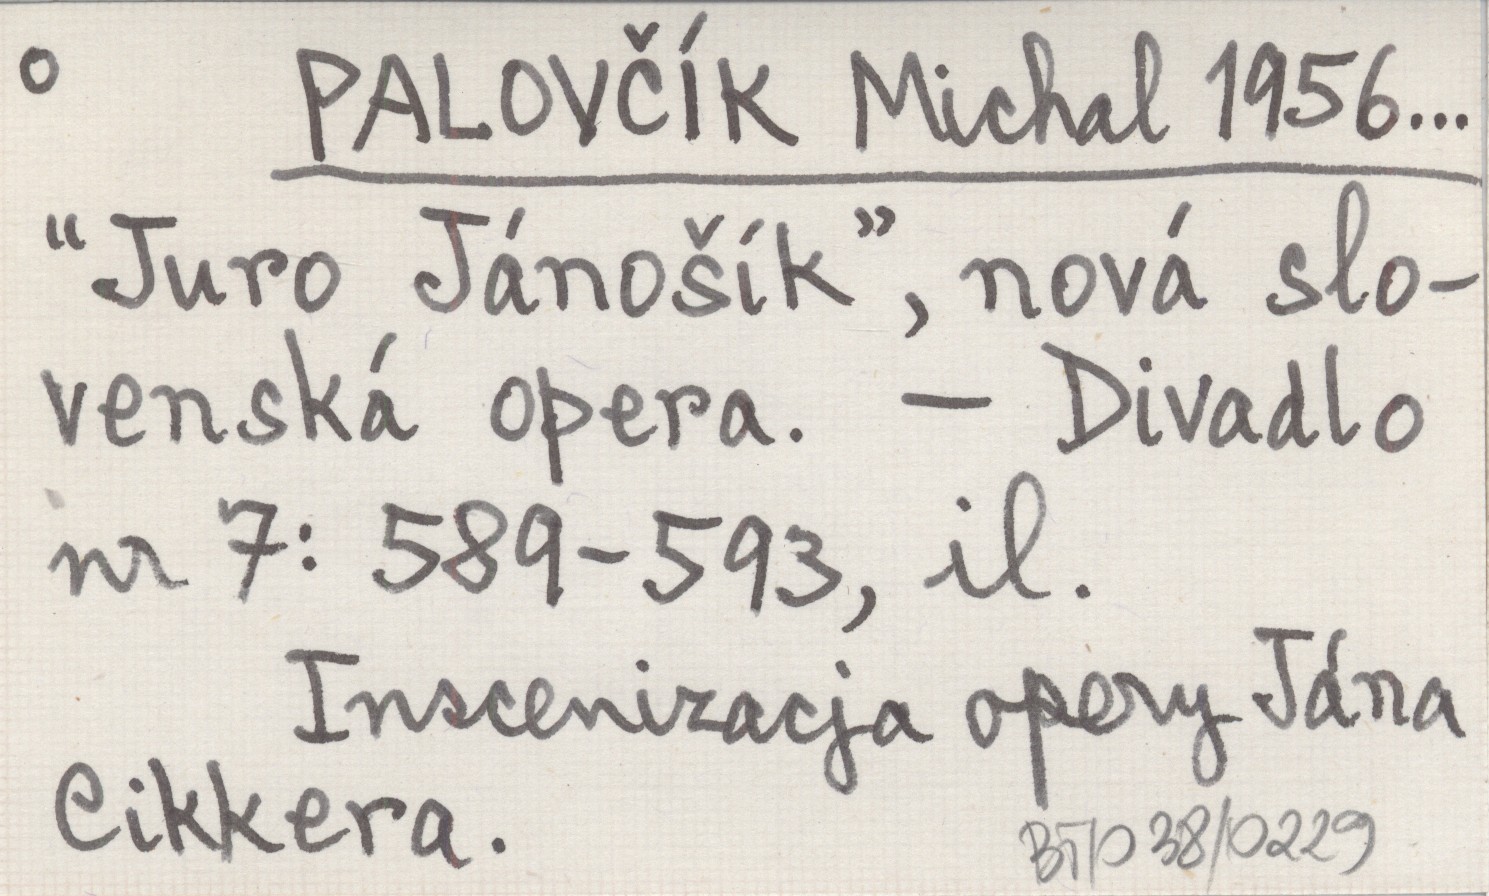 o PALOVČÍK Michal 1956...
“Juro Jánošík”, nová slo-
venská opera. — Divadlo
nr 7: 589-593, il.
Inscenizacja opery Jána
Cikkera.
BTP 38/0229